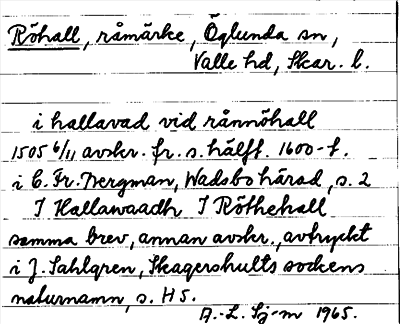 Röhall, råmärke, Öglunda sn,
Valle hd, Skar. l.
i hallavad vid rånnöhall
1505 6/11 avskr. fr. s. hälft. 1600-t.
i C. Fr. Bergman, Wadsbo härad, s. 2
I Hallawaadh I Röthehall
samma brev, annan avskr., avtryckt
i J. Sahlgren, Skagershults sockens
naturnamn, s. H5.
A.-L. Sj-m 1965.